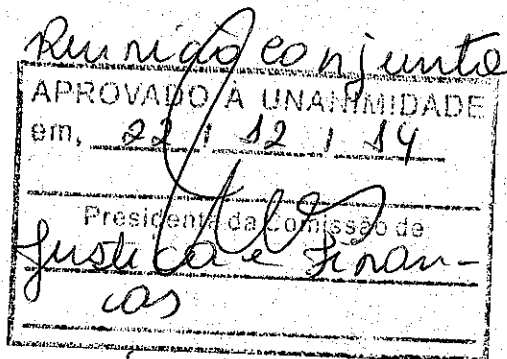 Reunião conjunta
APROVADO À UNANIMIDADE
em, 22 / 12 / 14
Presidente da Comissão de
Justiça e Finan-
ças